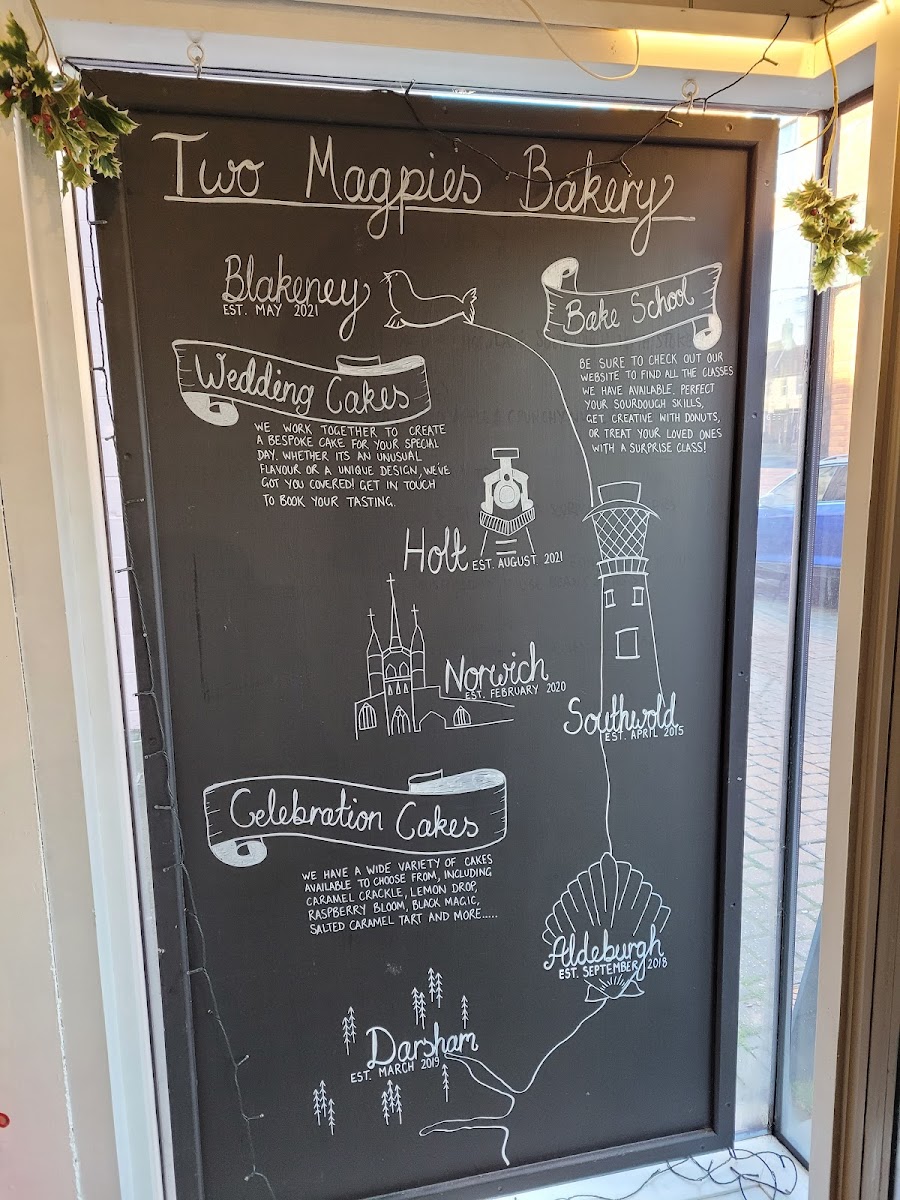 Two Magpies Bakery
Blakeney
EST. MAY 2021
Bake School
BE SURE TO CHECK OUT OUR
WEBSITE TO FIND ALL THE CLASSES
WE HAVE AVAILABLE. PERFECT
YOUR SOURDOUGH SKILLS,
GET CREATIVE WITH DONUTS,
OR TREAT YOUR LOVED ONES
WITH A SURPRISE CLASS!
Wedding Cakes
WE WORK TOGETHER TO CREATE
A BESPOKE CAKE FOR YOUR SPECIAL
DAY. WHETHER ITS AN UNUSUAL
FLAVOUR OR A UNIQUE DESIGN, WE'VE
GOT YOU COVERED! GET IN TOUCH
TO BOOK YOUR TASTING.
Holt
EST. AUGUST 2021
Norwich
EST. FEBRUARY 2020
Southwold
EST. APRIL 2015
Celebration Cakes
WE HAVE A WIDE VARIETY OF CAKES
AVAILABLE TO CHOOSE FROM, INCLUDING
CARAMEL CRACKLE, LEMON DROP,
RASPBERRY BLOOM, BLACK MAGIC,
SALTED CARAMEL TART AND MORE.....
Aldeburgh
EST. SEPTEMBER 2018
Darsham
EST. MARCH 2019